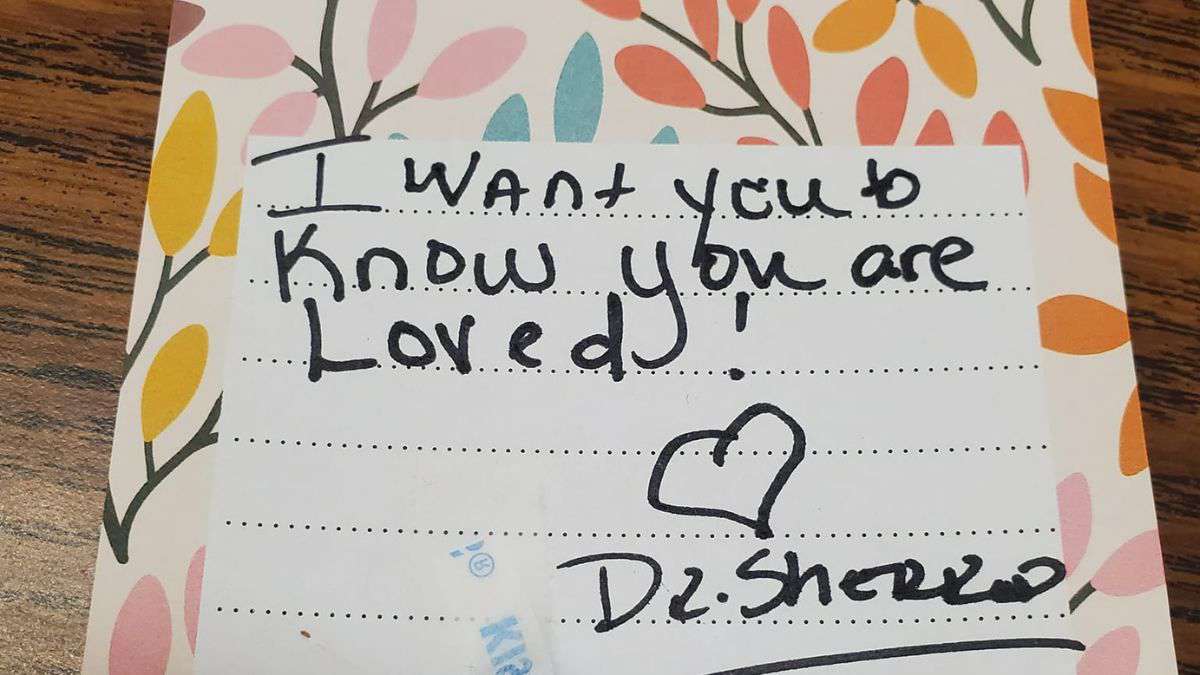 I want you to
Know you are
Loved!
Dr. Sherrod